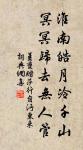 淮南皓月冷千山
冥冥歸去無人管
姜夔踏莎行自沔東來
詞典網書